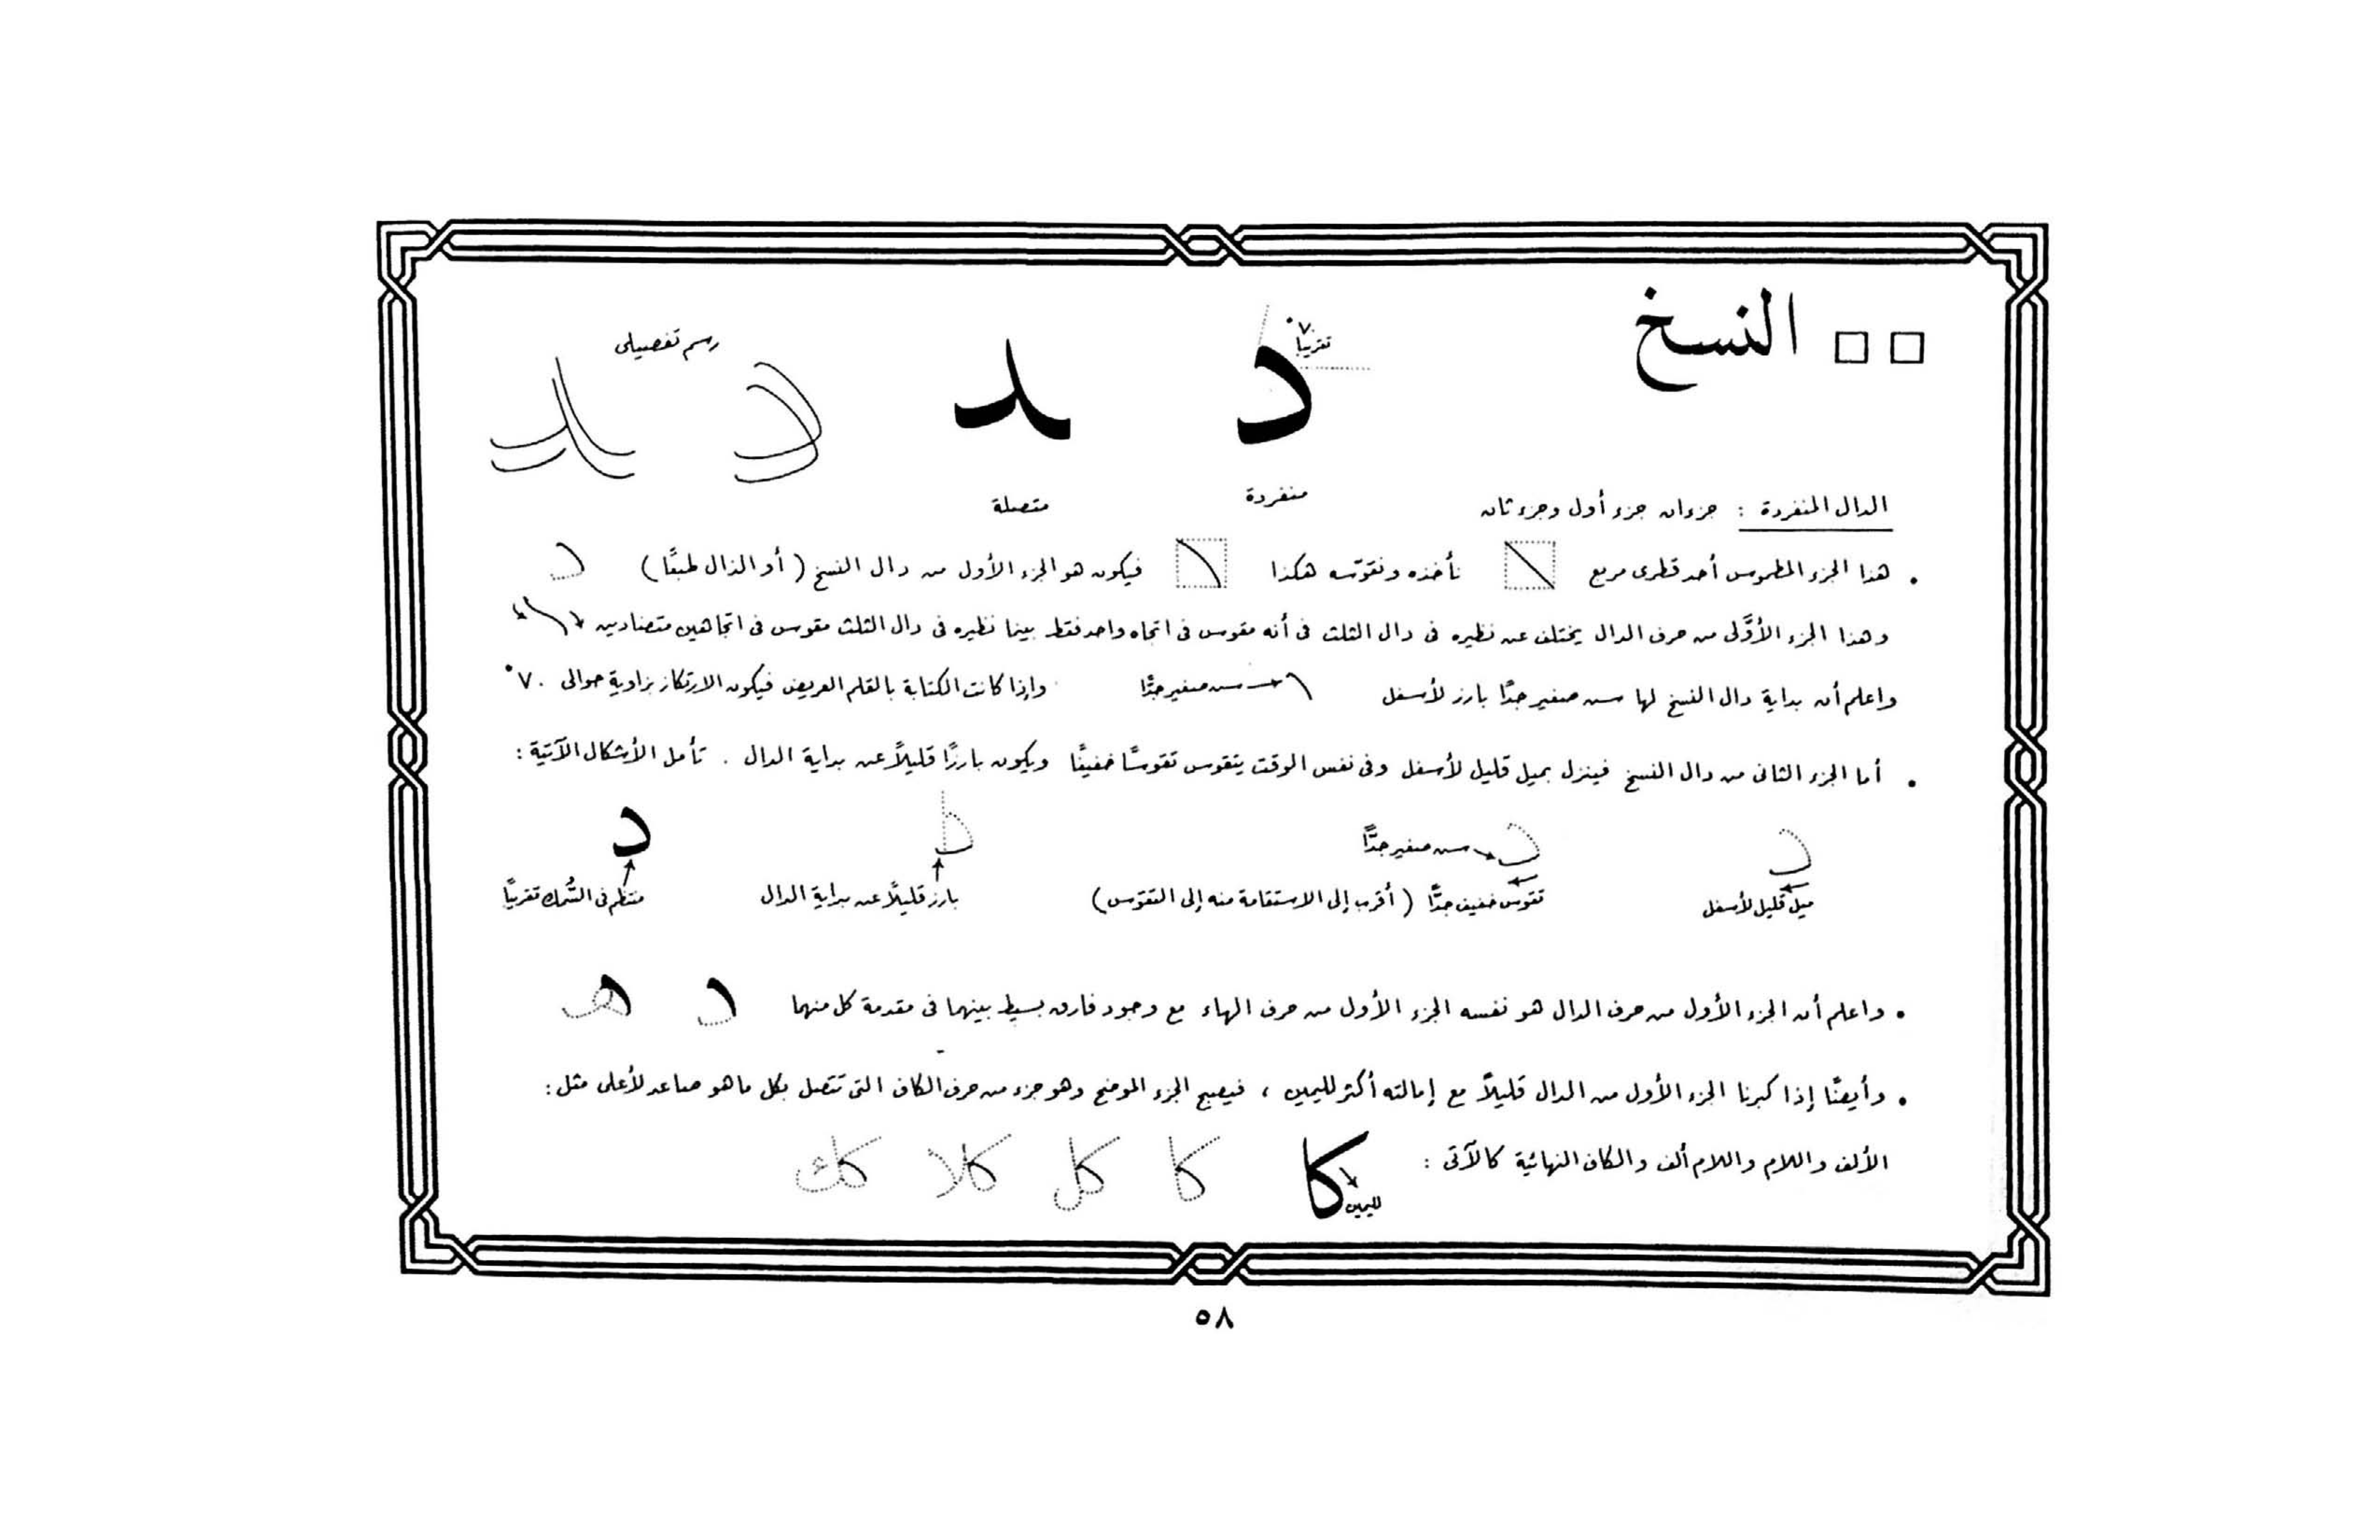 النسخ
٧٠° تقريبًا
د
د
رسم تفصيلى
منفردة
متصلة
الدال المنفردة : جزءان جزء أول وجزء ثان
• هذا الجزء المطموس أحد قطرى مربع نأخذه ونقوّسه هكذا فيكون هو الجزء الأول من دال النسخ ( أو الذال طبعًا )
وهذا الجزء الأوَّلى من حرف الدال يختلف عن نظيره فى دال الثلث فى أنه مقوس فى اتجاه واحد فقط بينما نظيره فى دال الثلث مقوس فى اتجاهين متضادين
واعلم أن بداية دال النسخ لها سن صغير جدًا بارز لأسفل سن صغير جدًّا وإذا كانت الكتابة بالقلم العريض فيكون الارتكاز بزاوية حوالى ٧٠°
• أما الجزء الثانى من دال النسخ فينزل بميل قليل لأسفل وفى نفس الوقت يتقوس تقوسًا خفيفًا ويكون بارزًا قليلاً عن بداية الدال . تأمل الأشكال الآتية :
سن صغير جدًّا
د
ميل قليل لأسفل
تقوس خفيف جدًّا ( أقرب إلى الاستقامة منه إلى التقوس )
بارز قليلاً عن بداية الدال
منتظم فى السُّمك تقريبًا
• واعلم أن الجزء الأول من حرف الدال هو نفسه الجزء الأول من حرف الهاء مع وجود فارق بسيط بينهما فى مقدمة كل منهما د هـ
• وأيضًا إذا كبرنا الجزء الأول من الدال قليلاً مع إمالته أكثر لليمين ، فيصبح الجزء الموضح وهو جزء من حرف الكاف التى تتصل بكل ما هو صاعد لأعلى مثل :
الألف واللام واللام ألف والكاف النهائية كالآتى : كا كا كل كلا كك
لليمين
٥٨